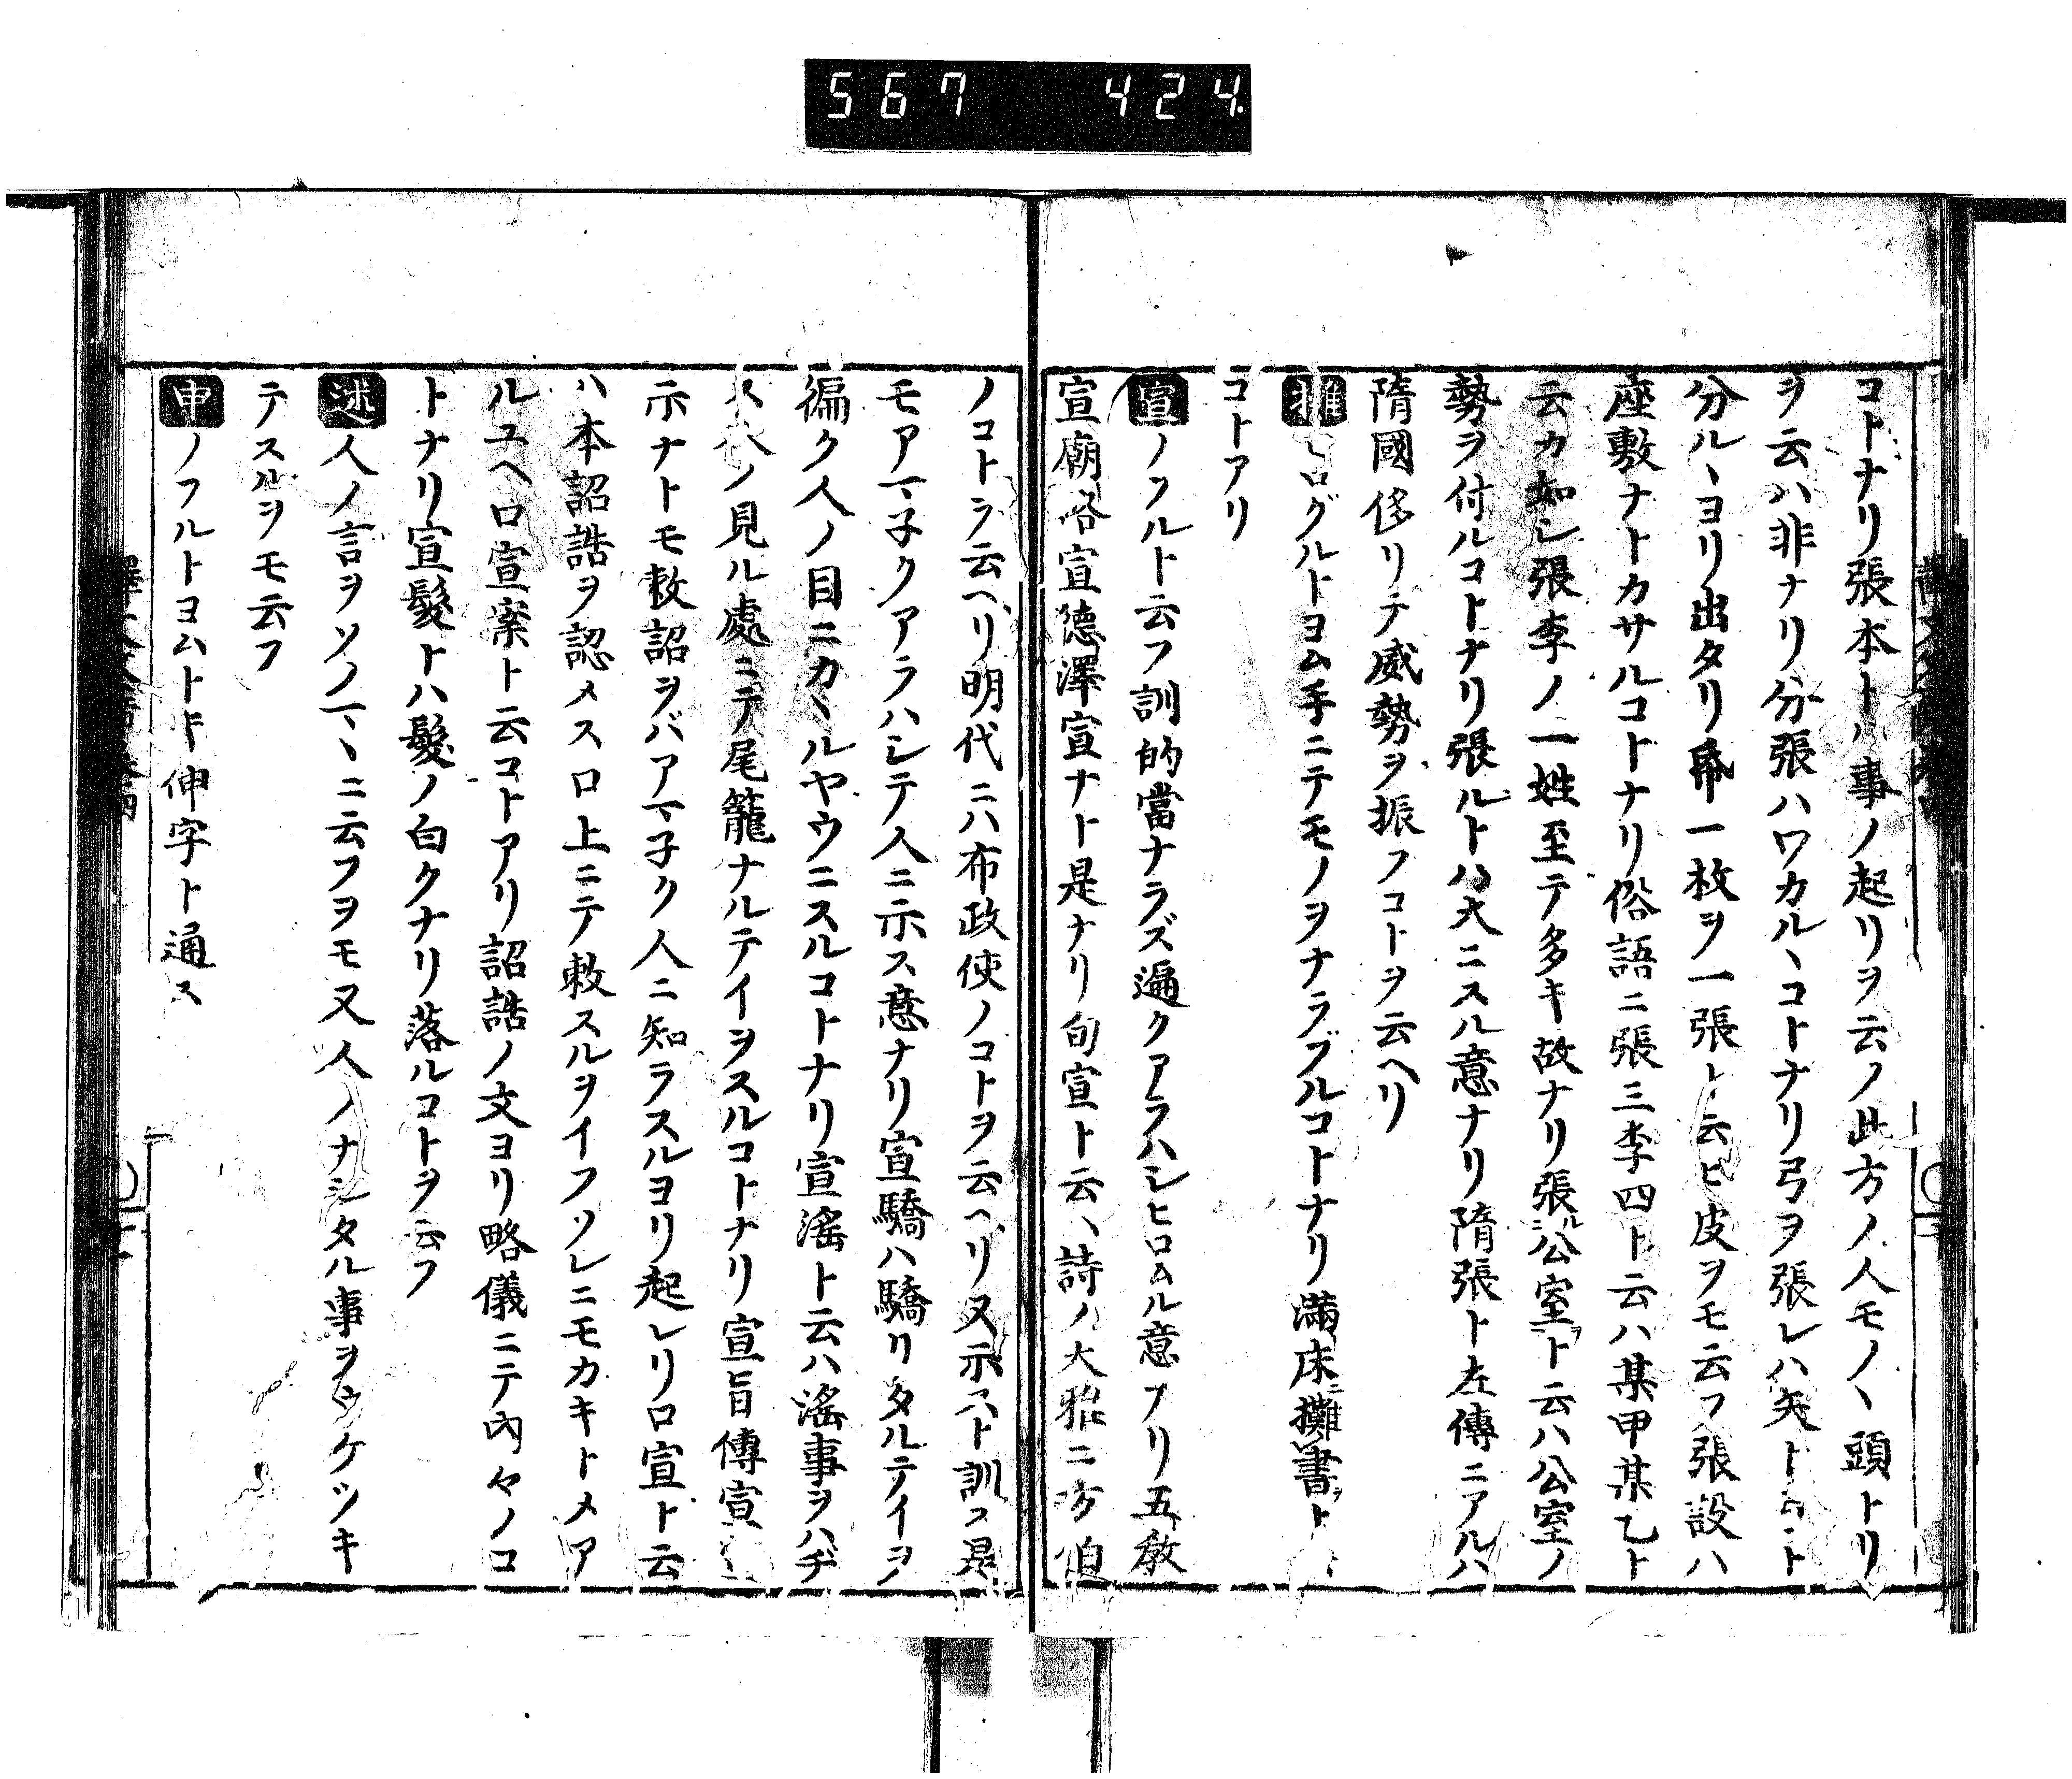 567 424
コトナリ張本トハ事ノ起リヲ云ノ此方ノ人モノヽ頭トリ
ヲ云ハ非ナリ分張ハワカルヽコトナリ弓ヲ張レハ矢ト
分ルヽヨリ出タリ帋一枚ヲ一張ト云ヒ皮ヲモ云フ張設ハ
座敷ナトカサルコトナリ俗語ニ張三李四ト云ハ某甲某乙ト
云カ如シ張李ノ一姓至テ多キ故ナリ張ルニ公室ヲト云ハ公室ノ
勢ヲ付ルコトナリ張ルトハ大ニスル意ナリ隋張ト左傳ニアルハ
隋國侈リテ威勢ヲ振フコトヲ云ヘリ
攤 ヒログルトヨム手ニテモノヲナラブルコトナリ滿床ニ攤書ヲト
コトアリ
宣 ノフルト云フ訓的當ナラズ遍クアラハシヒロムル意アリ五敎
宣廟咨宣德澤宣ナト是ナリ旬宣ト云ヽ詩ノ大雅ニ方伯
ノコトラ云ヘリ明代ニハ布政使ノコトヲ云ヘリ又示スト訓ス是
モアマ子クアラハシテ人ニ示ス意ナリ宣驕ハ驕リタルテイヲ
徧ク人ノ目ニカヽルヤウニスルコトナリ宣滛ト云ハ滛事ヲハヂ
ス人ノ見ル處ニテ尾籠ナルテイヲスルコトナリ宣旨傳宣
示ナトモ敕詔ヲバアマ子ク人ニ知ラスルヨリ起レリ口宣ト云
ハ本詔誥ヲ認メス口上ニテ敕スルヲイフソレニモカキトメア
ルユヘ口宣案ト云コトアリ詔誥ノ文ヨリ略儀ニテ內々ノコ
トナリ宣髮トハ髮ノ白クナリ落ルコトヲ云フ
述 人ノ言ヲソノマヽニ云フヲモ又人ノナシタル事ヲウケツキ
テスルヲモ云フ
申 ノフルトヨムトキ伸字ト通ス